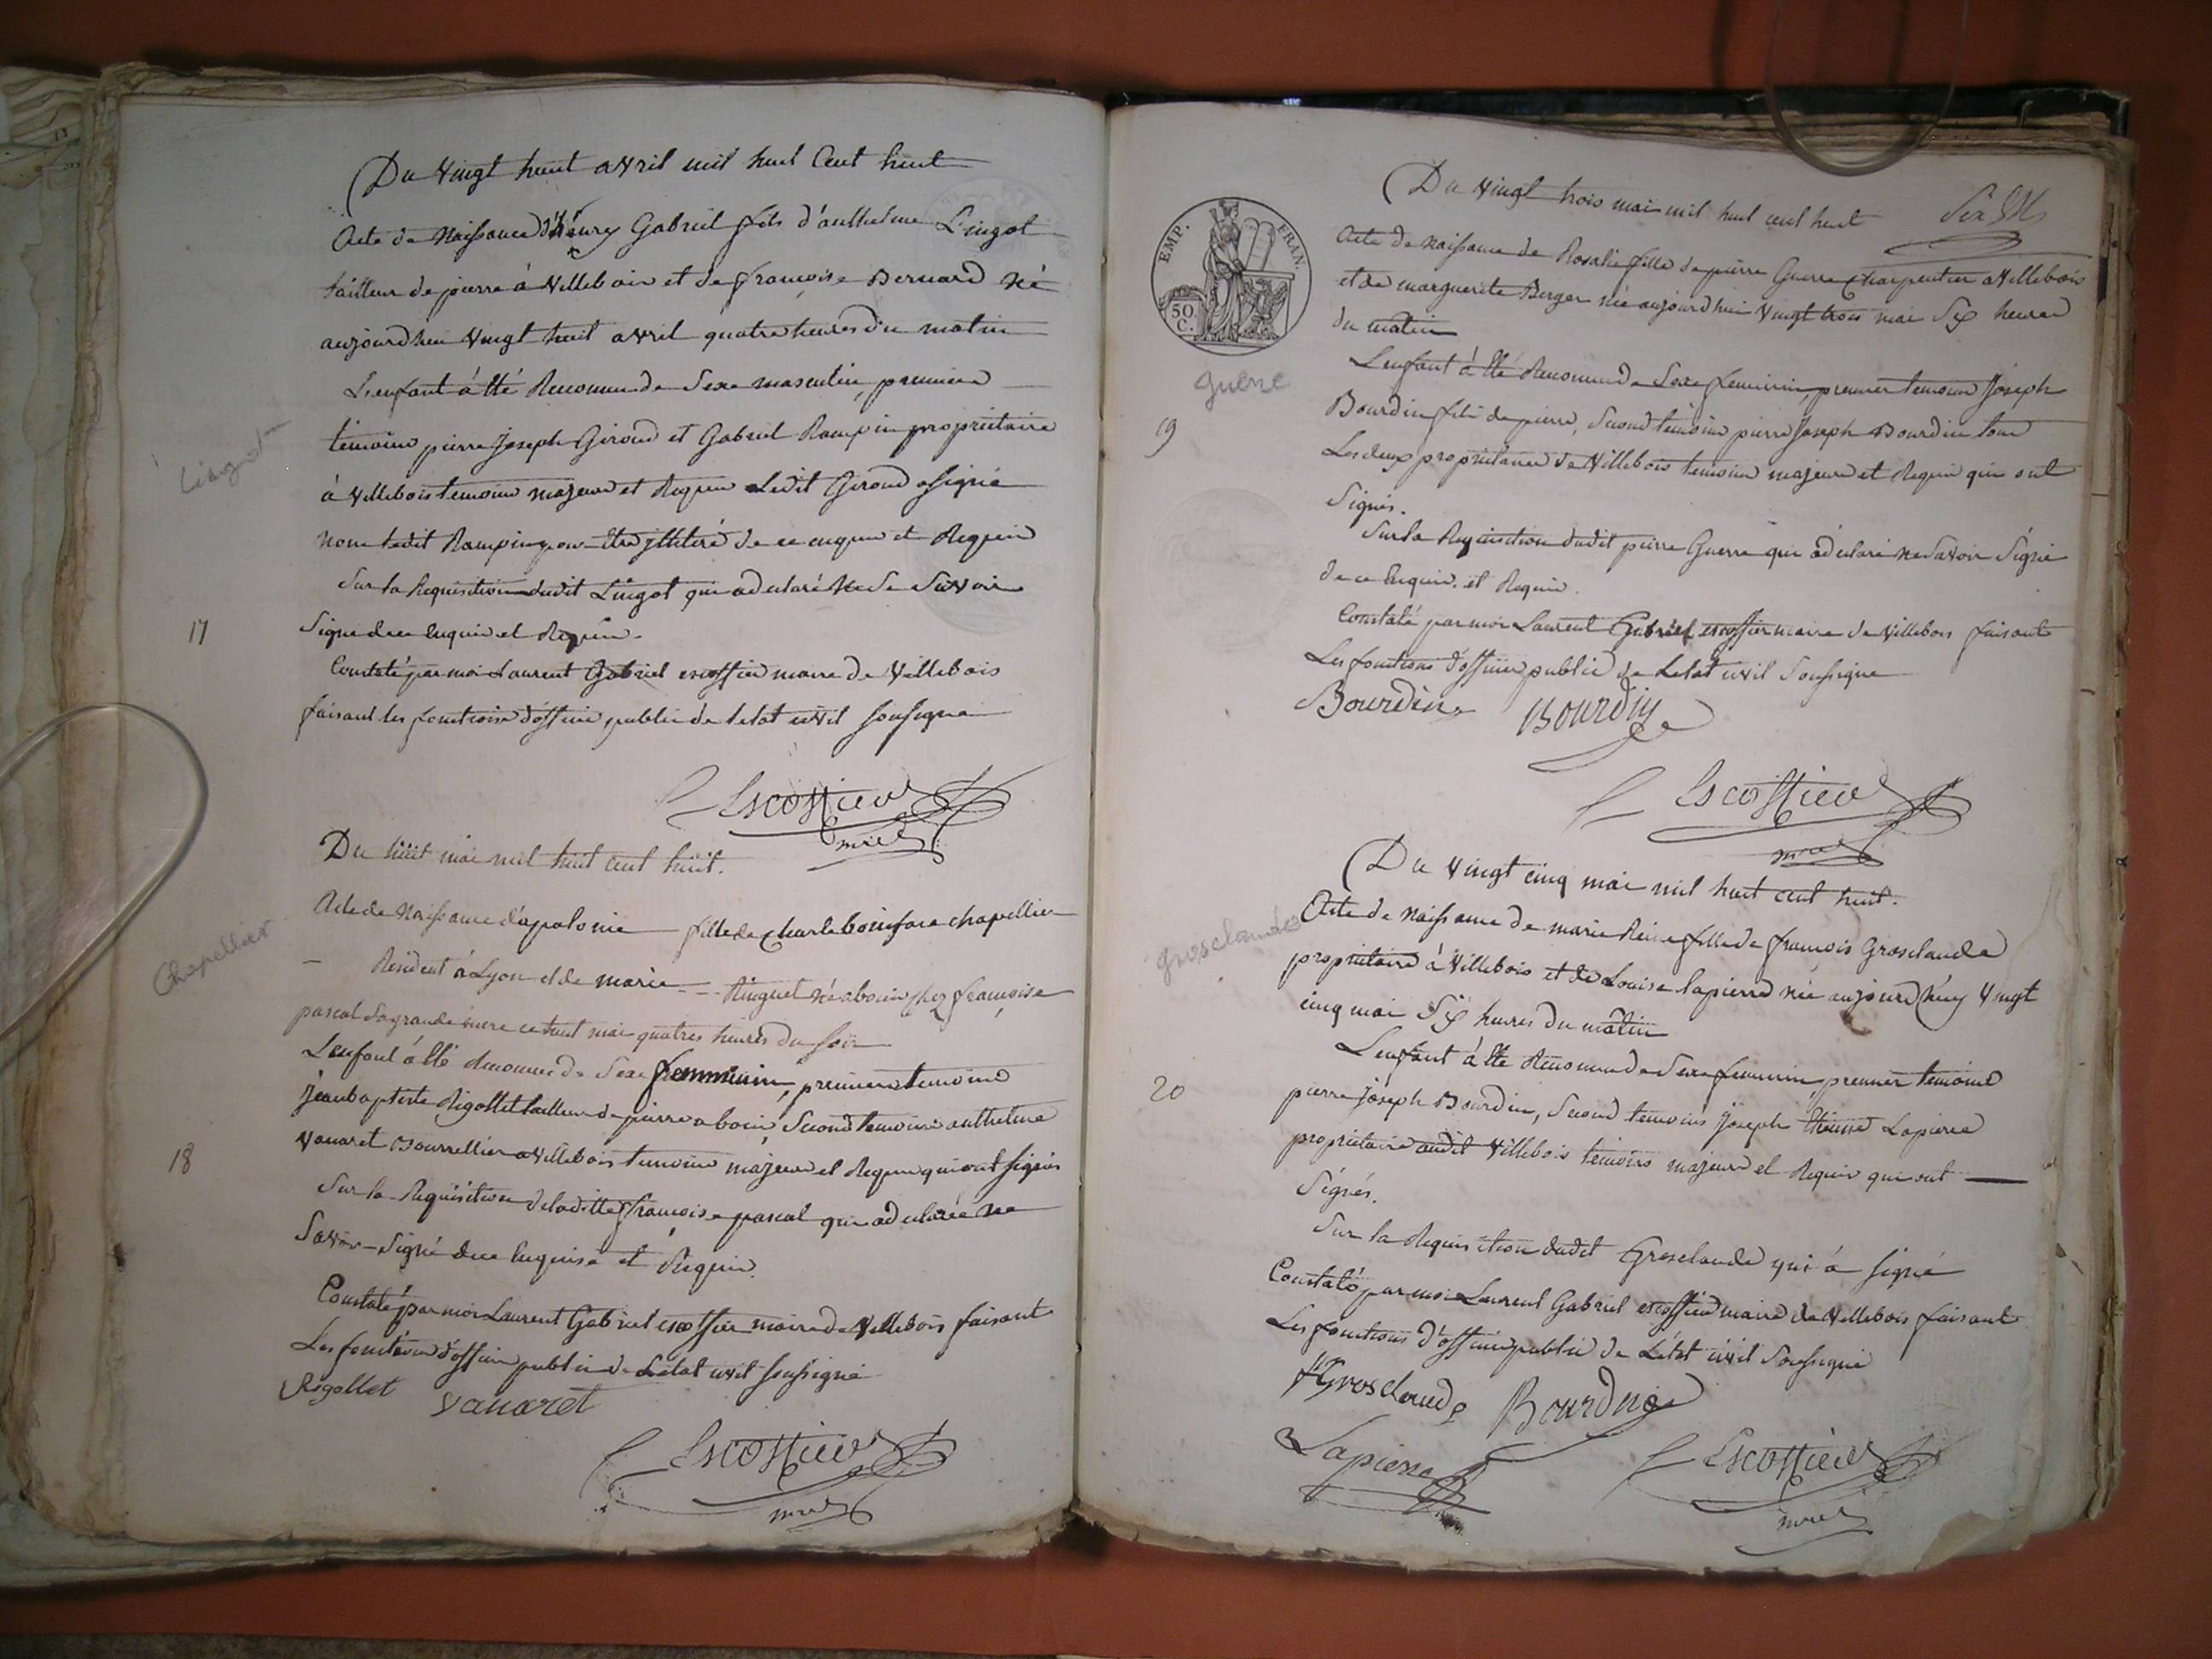 Du vingt huit avril mil huit Cent huit
Acte de Naissance d'héury Gabriel fils d'anthelme Lingot
tailleur de pierre à Villebois et de françoise Bernard né
aujourdhui vingt huit avril quatre heures du matin
L'enfant à été Reconnu de Sexe masculin, premier
témoins pierre Joseph Giroud et Gabriel Rampin propriétaire
à Villebois temoins majeurs et Requis Ledit Giroud a signé
non ledit Rampin pour être jllitéré de ce enquis et Requis
Sur la Requisition dudit Lingot qui a déclaré Ne Savoir
Signé de ce Enquis et Requis.
Constaté par moi Laurent Gabriel escoffier maire de Villebois
faisant les fonctions d'officier public de letat civil soussigné
Lingot
17
Escoffier
mre
Du huit mai mil huit cent huit.
Acte de Naissance d'apolonie fille de Charle boniface chapellier
Resident à Lyon et de marie Ringuet née a bouis chez françoise
pascal Sa grande mere ce huit mai quatres heures du soir
L'enfant à été Reconnu de Sexe femminin, premier temoins
jean baptiste Rigollet tailleur de pierre a bouis, Second temoins anthelme
Vanaret Bourrellier a Villebois temoins majeurs et Requis qui ont signés
Sur la Requisition de laditte françoise pascal qui a déclarée ne
Savoir Signé de ce Enquise et Requis.
Constaté par moi Laurent Gabriel escoffier maire de Villebois faisant
Les fonctions d'officier public de Letat civil soussigné
Chapellier
18
Rigollet Vanaret
Escoffier
mre
EMP. FRAN.
50 C.
Du vingt trois mai mil huit cent huit
Acte de Naissance de Rosalie fille de pierre Guerre Charpentier a Villebois
et de marguerite Berger née aujourdhui Vingt trois mai Six heures
du matin
L'enfant à été Reconnu de Sexe feminin, premier temoins Joseph
Bourdin fils de pierre, Second temoins pierre Joseph Bourdin tous
Les deux propriétaires de Villebois temoins majeurs et Requis qui ont
Signés.
Sur la Requisition dudit pierre Guerre qui a déclaré ne Savoir Signé
de ce Enquis et Requis.
Constaté par moi Laurent Gabriel escoffier maire de Villebois faisant
Les fonctions d'officier public de Letat civil Soussigné
guerre
19
Bourdin Bourdin
Escoffier
mre
Du Vingt cinq mai mil huit cent huit.
Acte de Naissance de marie Reine fille de françois Grosclaude
propriétaire à Villebois et de Louise lapierre née aujourd'huy Vingt
cinq mai Six heures du matin
L'enfant à été Reconnu de Sexe feminin, premier temoins
pierre joseph Bourdin, Second temoins joseph étienne Lapierre
propriétaire audit Villebois temoins majeurs et Requis qui ont
Signés.
Sur la Requisition dudit Grosclaude qui à signé
Constaté par moi Laurent Gabriel escoffier maire de Villebois faisant
Les fonctions d'officier public de Létat civil Soussigné
grosclaude
20
f Grosclaude Bourdin
Lapierre Escoffier
mre